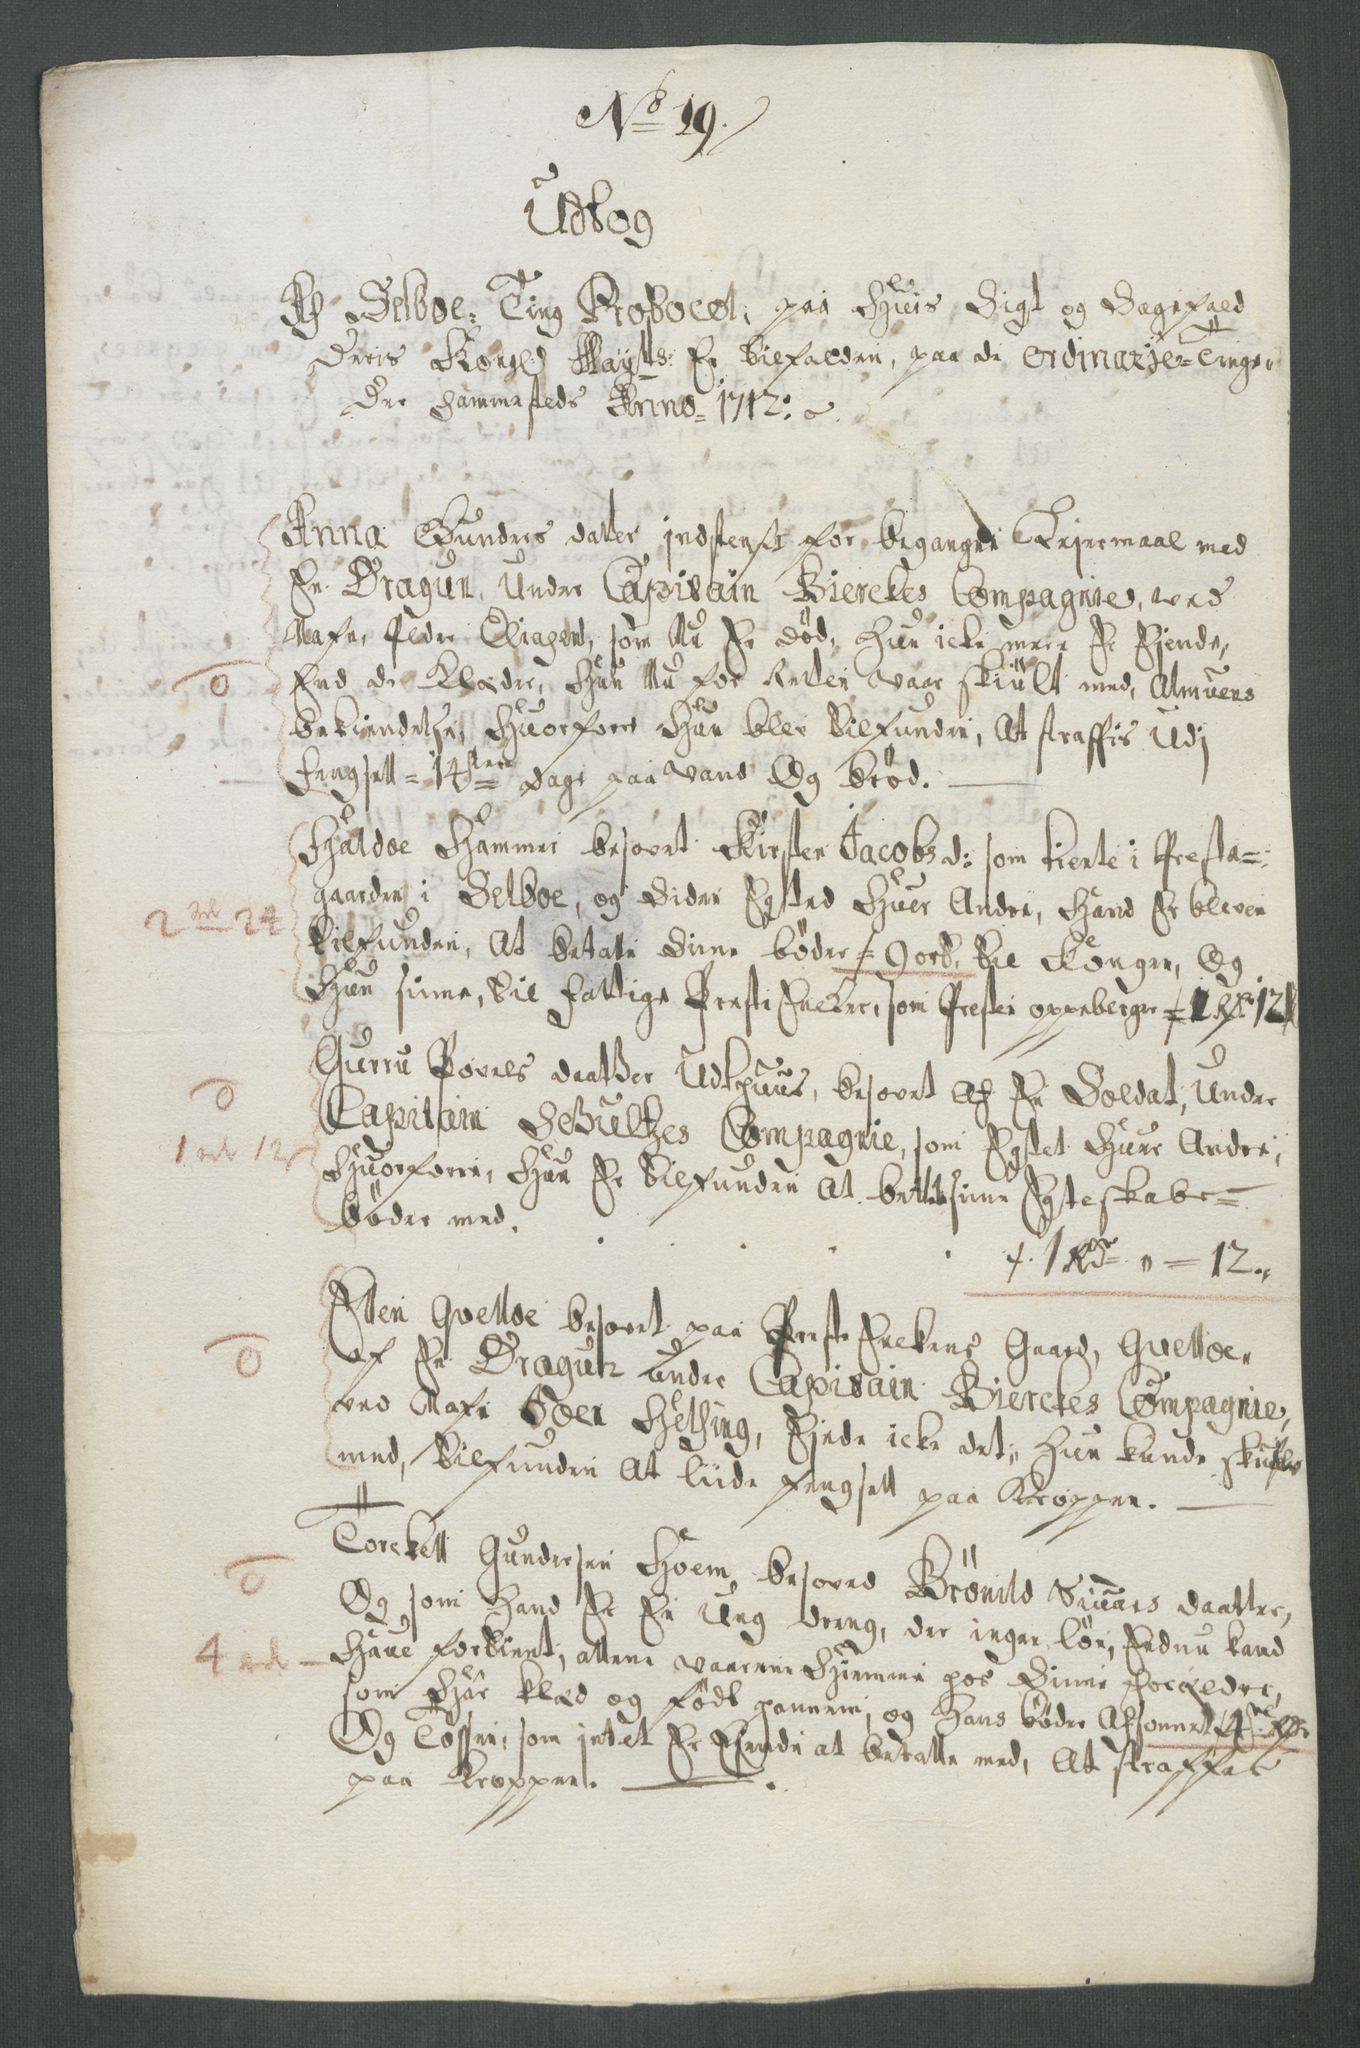 No 19.
Udtog
Af Selboe Ting Protocol, paa Huis Sigt og Sagefald
Deris Kongel Mayts: Er tilfalden, paa de ordinarie Tinger
Der sammesteds Anno 1712:
Anna Gunders datter indstenft for begangne Leiermaal med
En Dragun, Under Capitain Bierckes Compagnie, ved
Nafn Peder, som Nu Er död, Hun icke mere Er Ejende,
End de Klæder, Hun Nu for Retten vaar skiult med, Almuens
bekiendelse, Huorfore Hun blev tilfunden, At straffis Udj
Fengsell 14ten dage paa Vand Og bröd.
Haldoe Hammer besovet Kirsten Jacobs d: som tiente i Preste
gaarden i Selboe, og Siden Egted Huer Andre, Hand Er bleven
tilfunden, At betale Sine böder 9 ort, til Kongen, Og
Hun sinne, til fattige Preste Encker, som Presten oppeberger 1 Rdr 12
2 rd 24
Gurru Povels daatter Udthuus, besovet Af En Soldat, Under
Capitain Schultzes Compagnie, som Egtet Huer Andre,
Huorforre, Hun Er tilfunden At bettale sinne Egteskabs
böder med.
1 Rdr " 12
0
1 rd 12
Ellen Qvelloe besovet paa Preste Enckens Gaard, Qvelloe
af En Dragun under Capitain Bierckes Compagnie,
ved Nafn Joen Hething, Ejede icke det, Hun kunde skiules
med, tilfunden At liide fengsell paa Kroppen.
0
Torckell Gundersen Hoem, besoved Brönild Siuars daatter,
Og som Hand Er En Ung dreng, der ingen lön, Endnu kand
Haue fortient, allene vaarren Hiemme hos Sinne forældre,
som Har klæd og föd hannem, og Hans böder Afsonnet 4 Rdr
Og Tössen, som intet Er Ejende at betalle med, At straffes
paa Kroppen.
0
4 rd